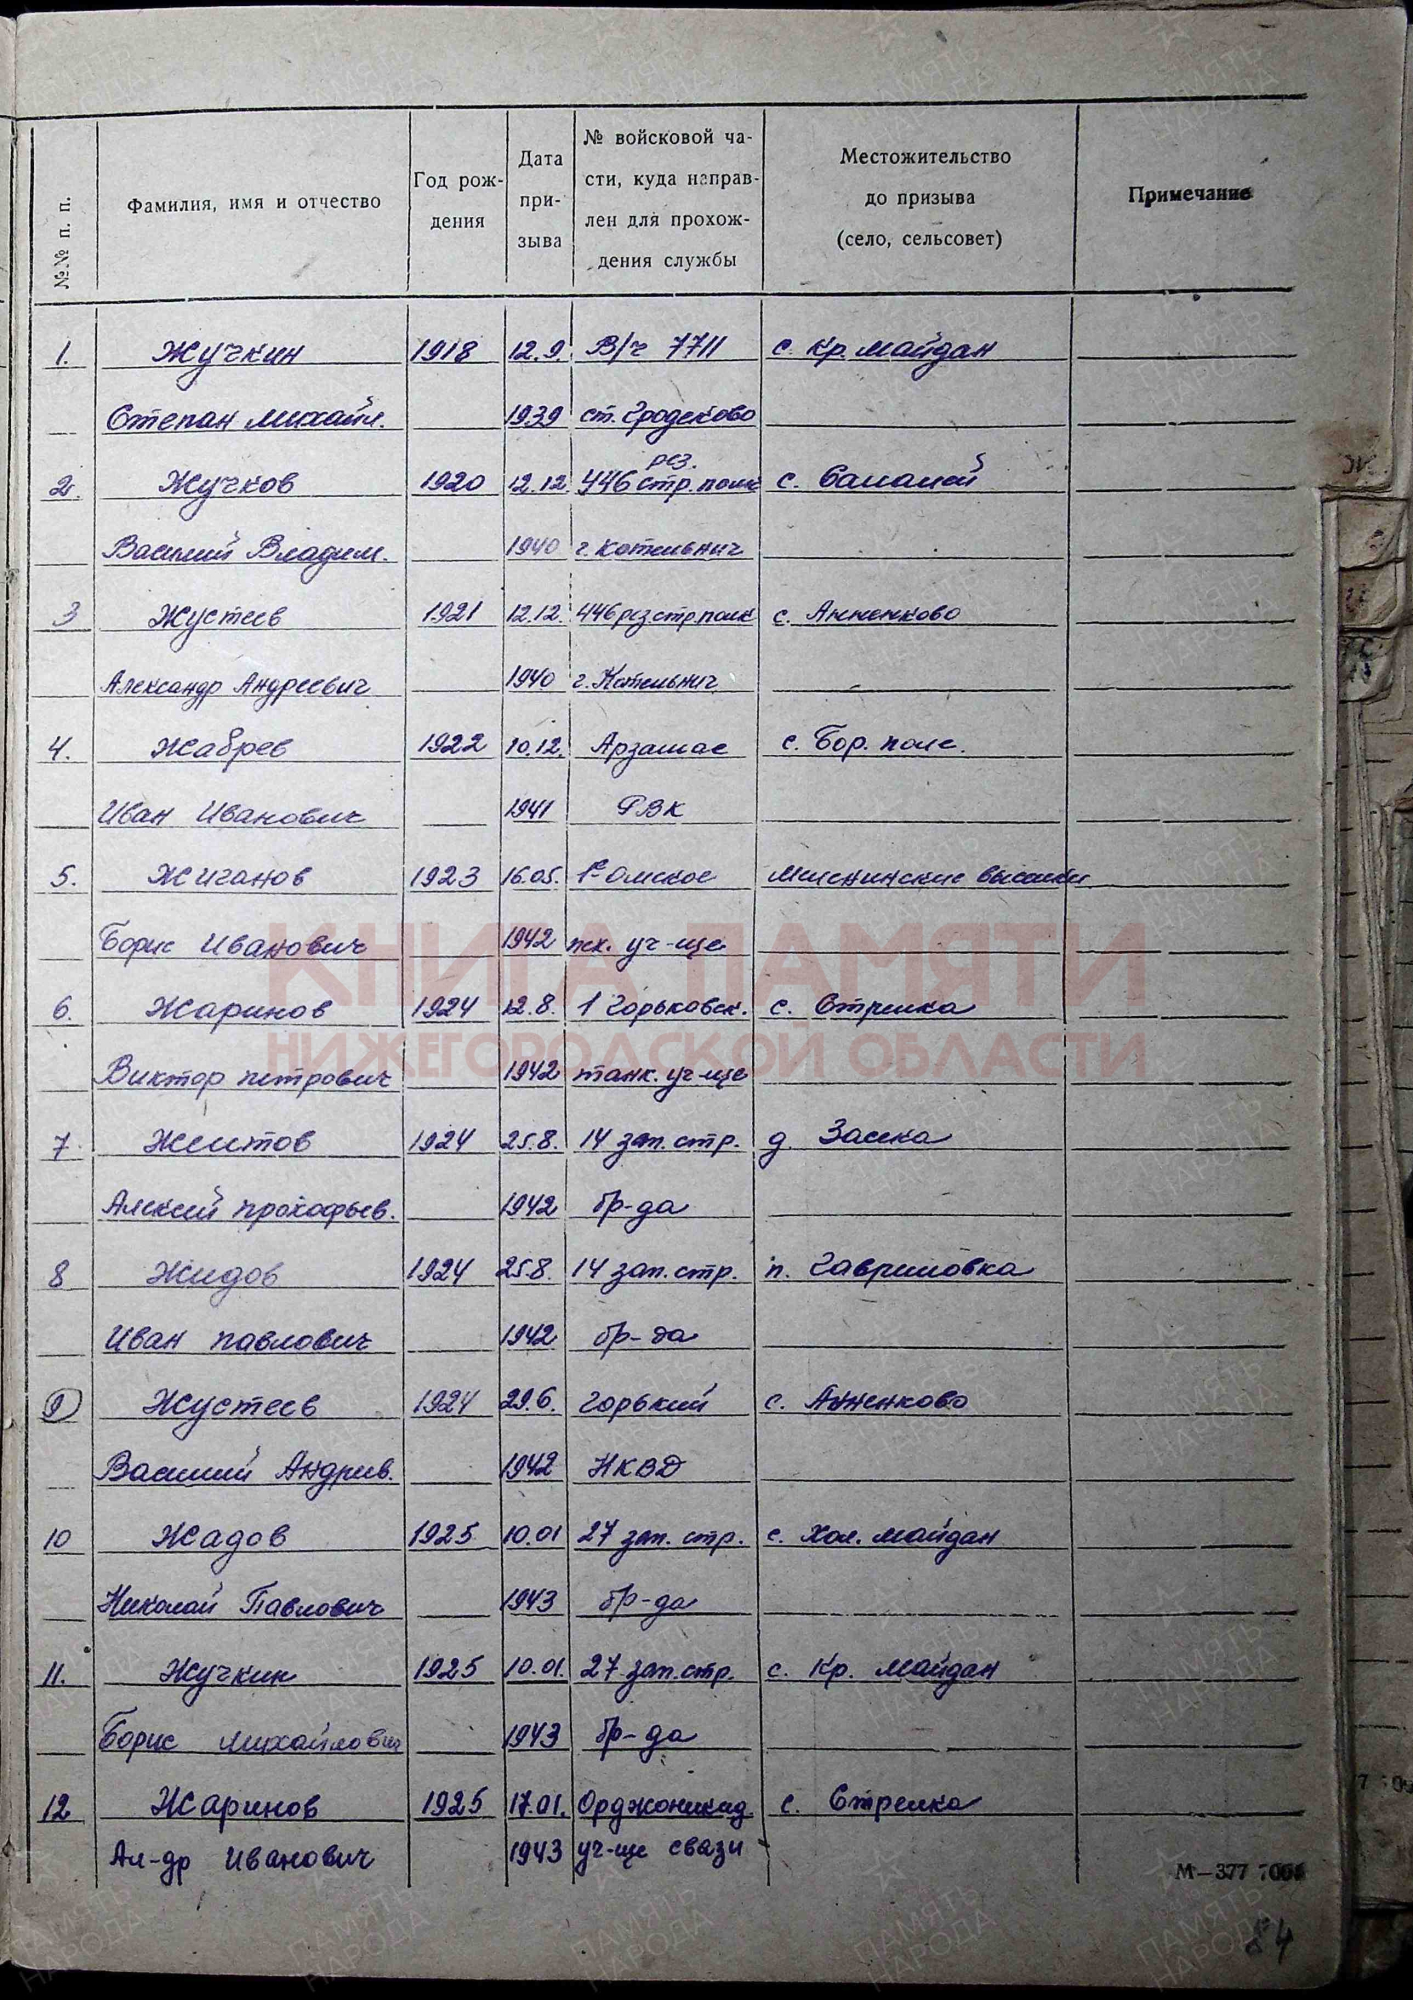 №№ п. п.
Фамилия, имя и отчество
Год рож-
дения
Дата
при-
зыва
№ войсковой ча-
сти, куда направ-
лен для прохож-
дения службы
Местожительство
до призыва
(село, сельсовет)
Примечание
1. Жучкин 1918 12.9. В/ч 7711 с. Кр. майдан
Степан Михайл. 1939 ст. Гродеково
рез.
2. Жучков 1920 12.12 446 стр. полк с.
Василий Владим. 1940 г. Котельнич
3 Жустеев 1921 12.12. 446 рез стр. полк с. Анненково
Александр Андреевич 1940 г. Котельнич
4. Жабрев 1922 10.12. Арзамас с. Бор. поле.
Иван Иванович 1941 РВК
5. Жиганов 1923 16.05. 1е Омское выселки
Борис Иванович 1942 пех. уч-ще
КНИГА ПАМЯТИ
6. Жаринов 1924 12.8. 1 Горьковск. с. Стрелка
НИЖЕГОРОДСКОЙ ОБЛАСТИ
Виктор петрович 1942 танк. уч-ще
7 Желтов 1924 25.8. 14 зап. стр. д. Засека
Алексей прокофьев. 1942 бр-да
8 Жидов 1924 25.8. 14 зап. стр. п. Гавриловка
Иван павлович 1942 бр-да
9 Жустеев 1924 29.6. Горький с. Анненково
Василий Андреев. 1942 НКВД
10 Жадов 1925 10.01 27 зап. стр. с. Хол. майдан
Николай Павлович 1943 бр-да
11. Жучкин 1925 10.01. 27 зап. стр. с. Кр. майдан
Борис Михайлович 1943 бр-да
12 Жаринов 1925 17.01. Орджоникид. с. Стрелка
Ал-др Иванович 1943 уч-ще связи
М—377
84